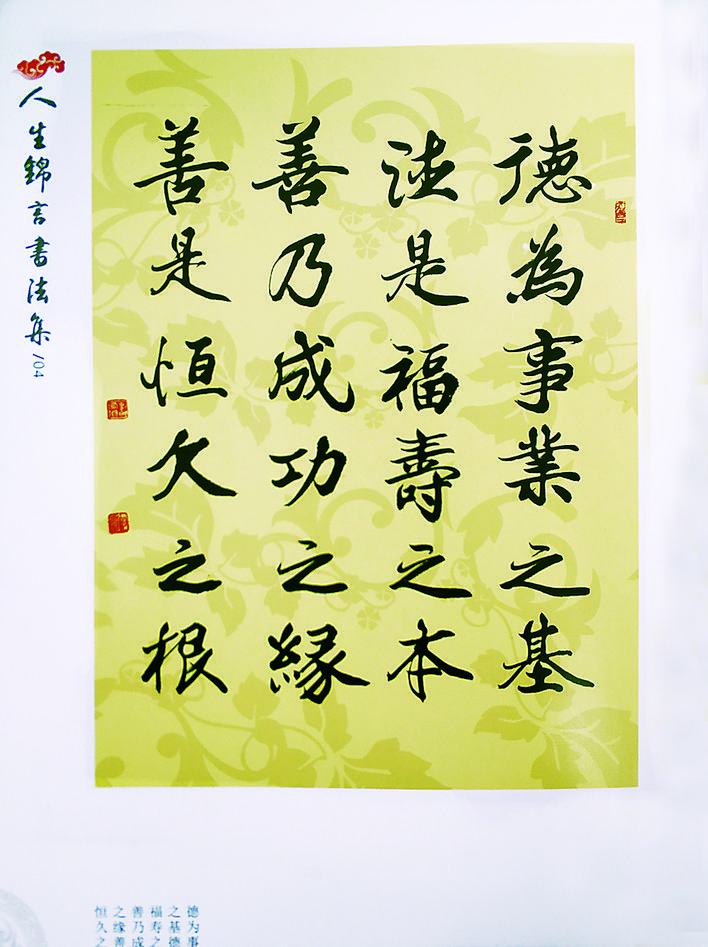 德為事業之基
德是福壽之本
善乃成功之緣
善是恒久之根
人生錦言書法集 104
德为事
之基德
福寿之
善乃成
之缘善
恒久之